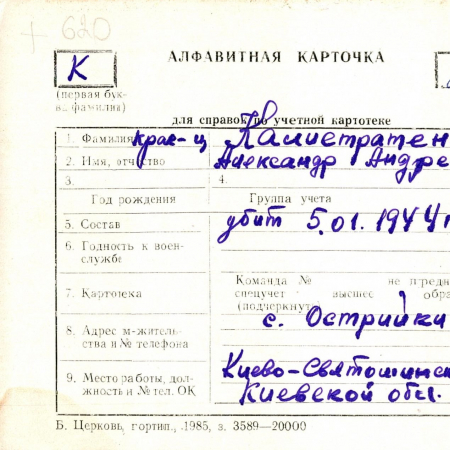 + 620
АЛФАВИТНАЯ КАРТОЧКА
К
(первая бук-
ва фамилии)
для справок по учетной картотеке
1. Фамилия крас-ц Калистратен
2. Имя, отчество Александр Андре
3. 4.
Год рождения Группа учета
5. Состав убит 5.01.1944 г
6. Годность к воен-
службе
Команда № не предн
7. Картотека спецучет высшее обра
(подчеркнуть)
8. Адрес м-житель- с. Острийки
ства и № телефона
Киево-Святошинс
9. Место работы, дол-
жность и № тел. ОК Киевской обл.
Б. Церковь, гортип., 1985, з. 3589—20000